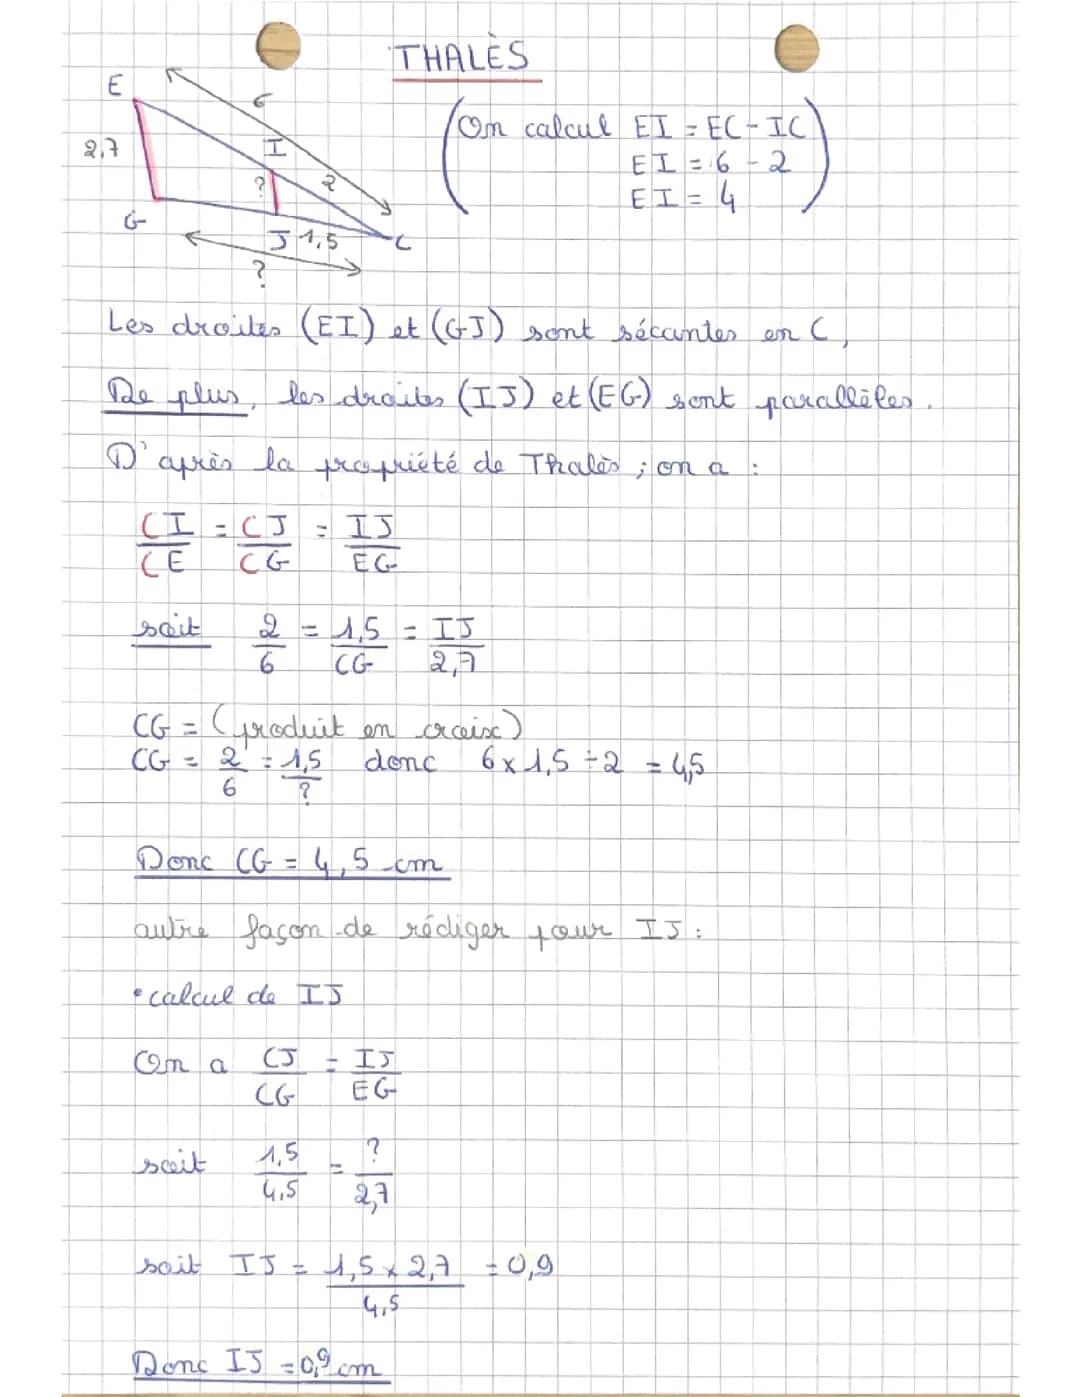 THALÈS
E
6
2,7
I
?
2
G
J 1,5
C
?
(On calcul EI = EC - IC
EI = 6 - 2
EI = 4)
Les droites (EI) et (GJ) sont sécantes en C,
De plus, les droites (IJ) et (EG) sont parallèles.
D'après la propriété de Thalès ; on a :
CI/CE = CJ/CG = IJ/EG
soit 2/6 = 1,5/CG = IJ/2,7
CG = (produit en croix)
CG = 2/6 = 1,5/? donc 6 x 1,5 ÷ 2 = 4,5
Donc CG = 4,5 cm
autre façon de rédiger pour IJ :
• calcul de IJ
On a CJ/CG = IJ/EG
soit 1,5/4,5 = ?/2,7
soit IJ = 1,5 x 2,7/4,5 = 0,9
Donc IJ = 0,9 cm